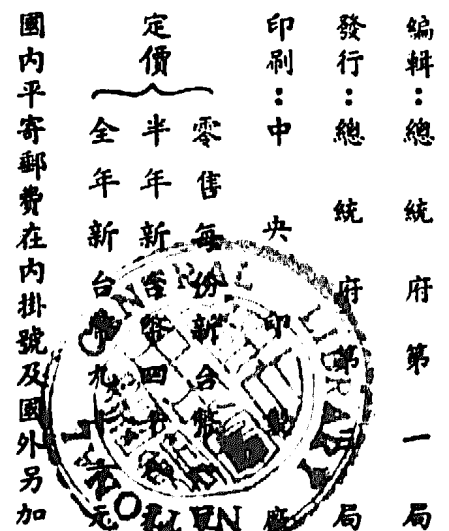 編輯：總統府第一局
發行：總統府第局
印刷：中央印廠
定價
零售每份新台幣
半年新台幣四十
全年新台幣九十元
國內平寄郵費在內掛號及國外另加
NATIONAL CENTRAL LIBRARY